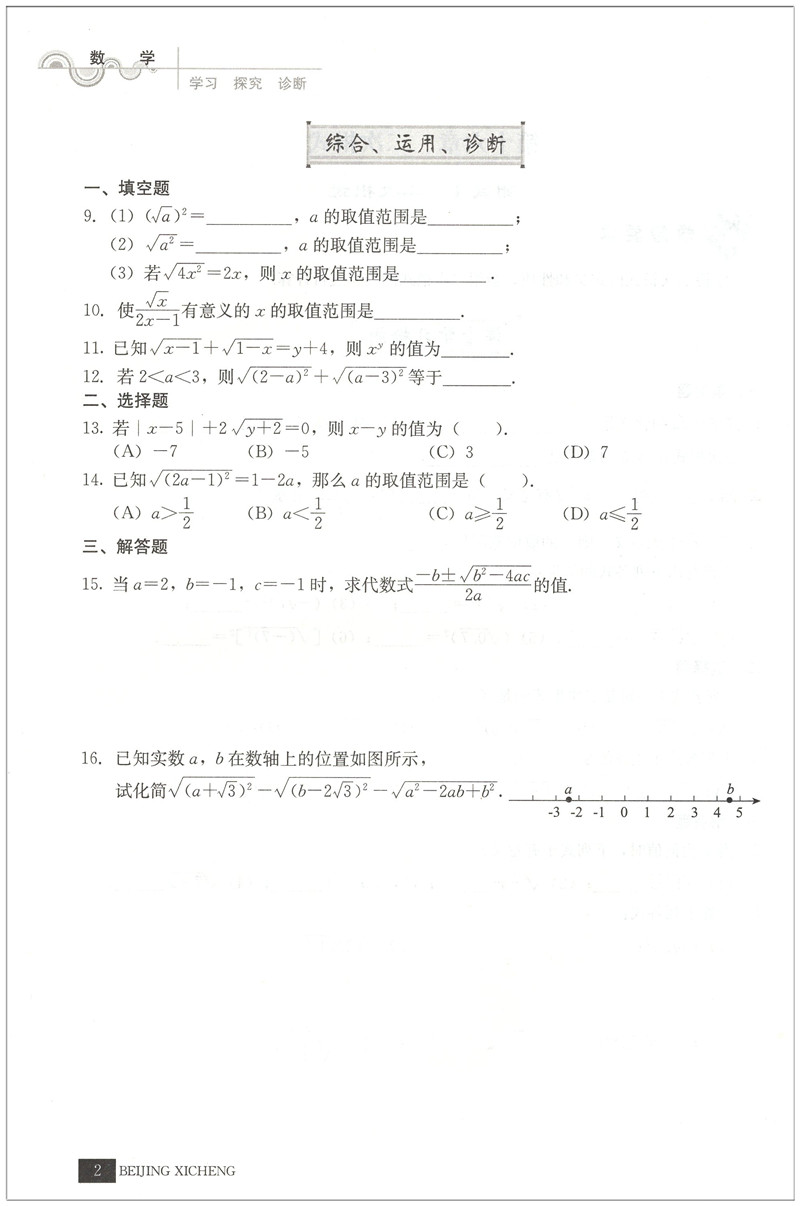 数 学
学习 探究 诊断
综合、运用、诊断
一、填空题
9. (1) (√a)²=________，a 的取值范围是________；
(2) √a²=________，a 的取值范围是________；
(3) 若√4x²=2x，则 x 的取值范围是________．
10. 使√x/(2x－1)有意义的 x 的取值范围是________．
11. 已知√(x－1)＋√(1－x)=y＋4，则 xʸ 的值为______．
12. 若 2<a<3，则√(2－a)²＋√(a－3)²等于______．
二、选择题
13. 若|x－5|＋2√(y＋2)=0，则 x－y 的值为（ ）．
(A) －7 (B) －5 (C) 3 (D) 7
14. 已知√(2a－1)²=1－2a，那么 a 的取值范围是（ ）．
(A) a>1/2 (B) a<1/2 (C) a≥1/2 (D) a≤1/2
三、解答题
15. 当 a=2，b=－1，c=－1 时，求代数式(－b±√(b²－4ac))/2a的值．
16. 已知实数 a，b 在数轴上的位置如图所示，
试化简√(a＋√3)²－√(b－2√3)²－√(a²－2ab＋b²)．
a b
-3 -2 -1 0 1 2 3 4 5
2 BEIJING XICHENG